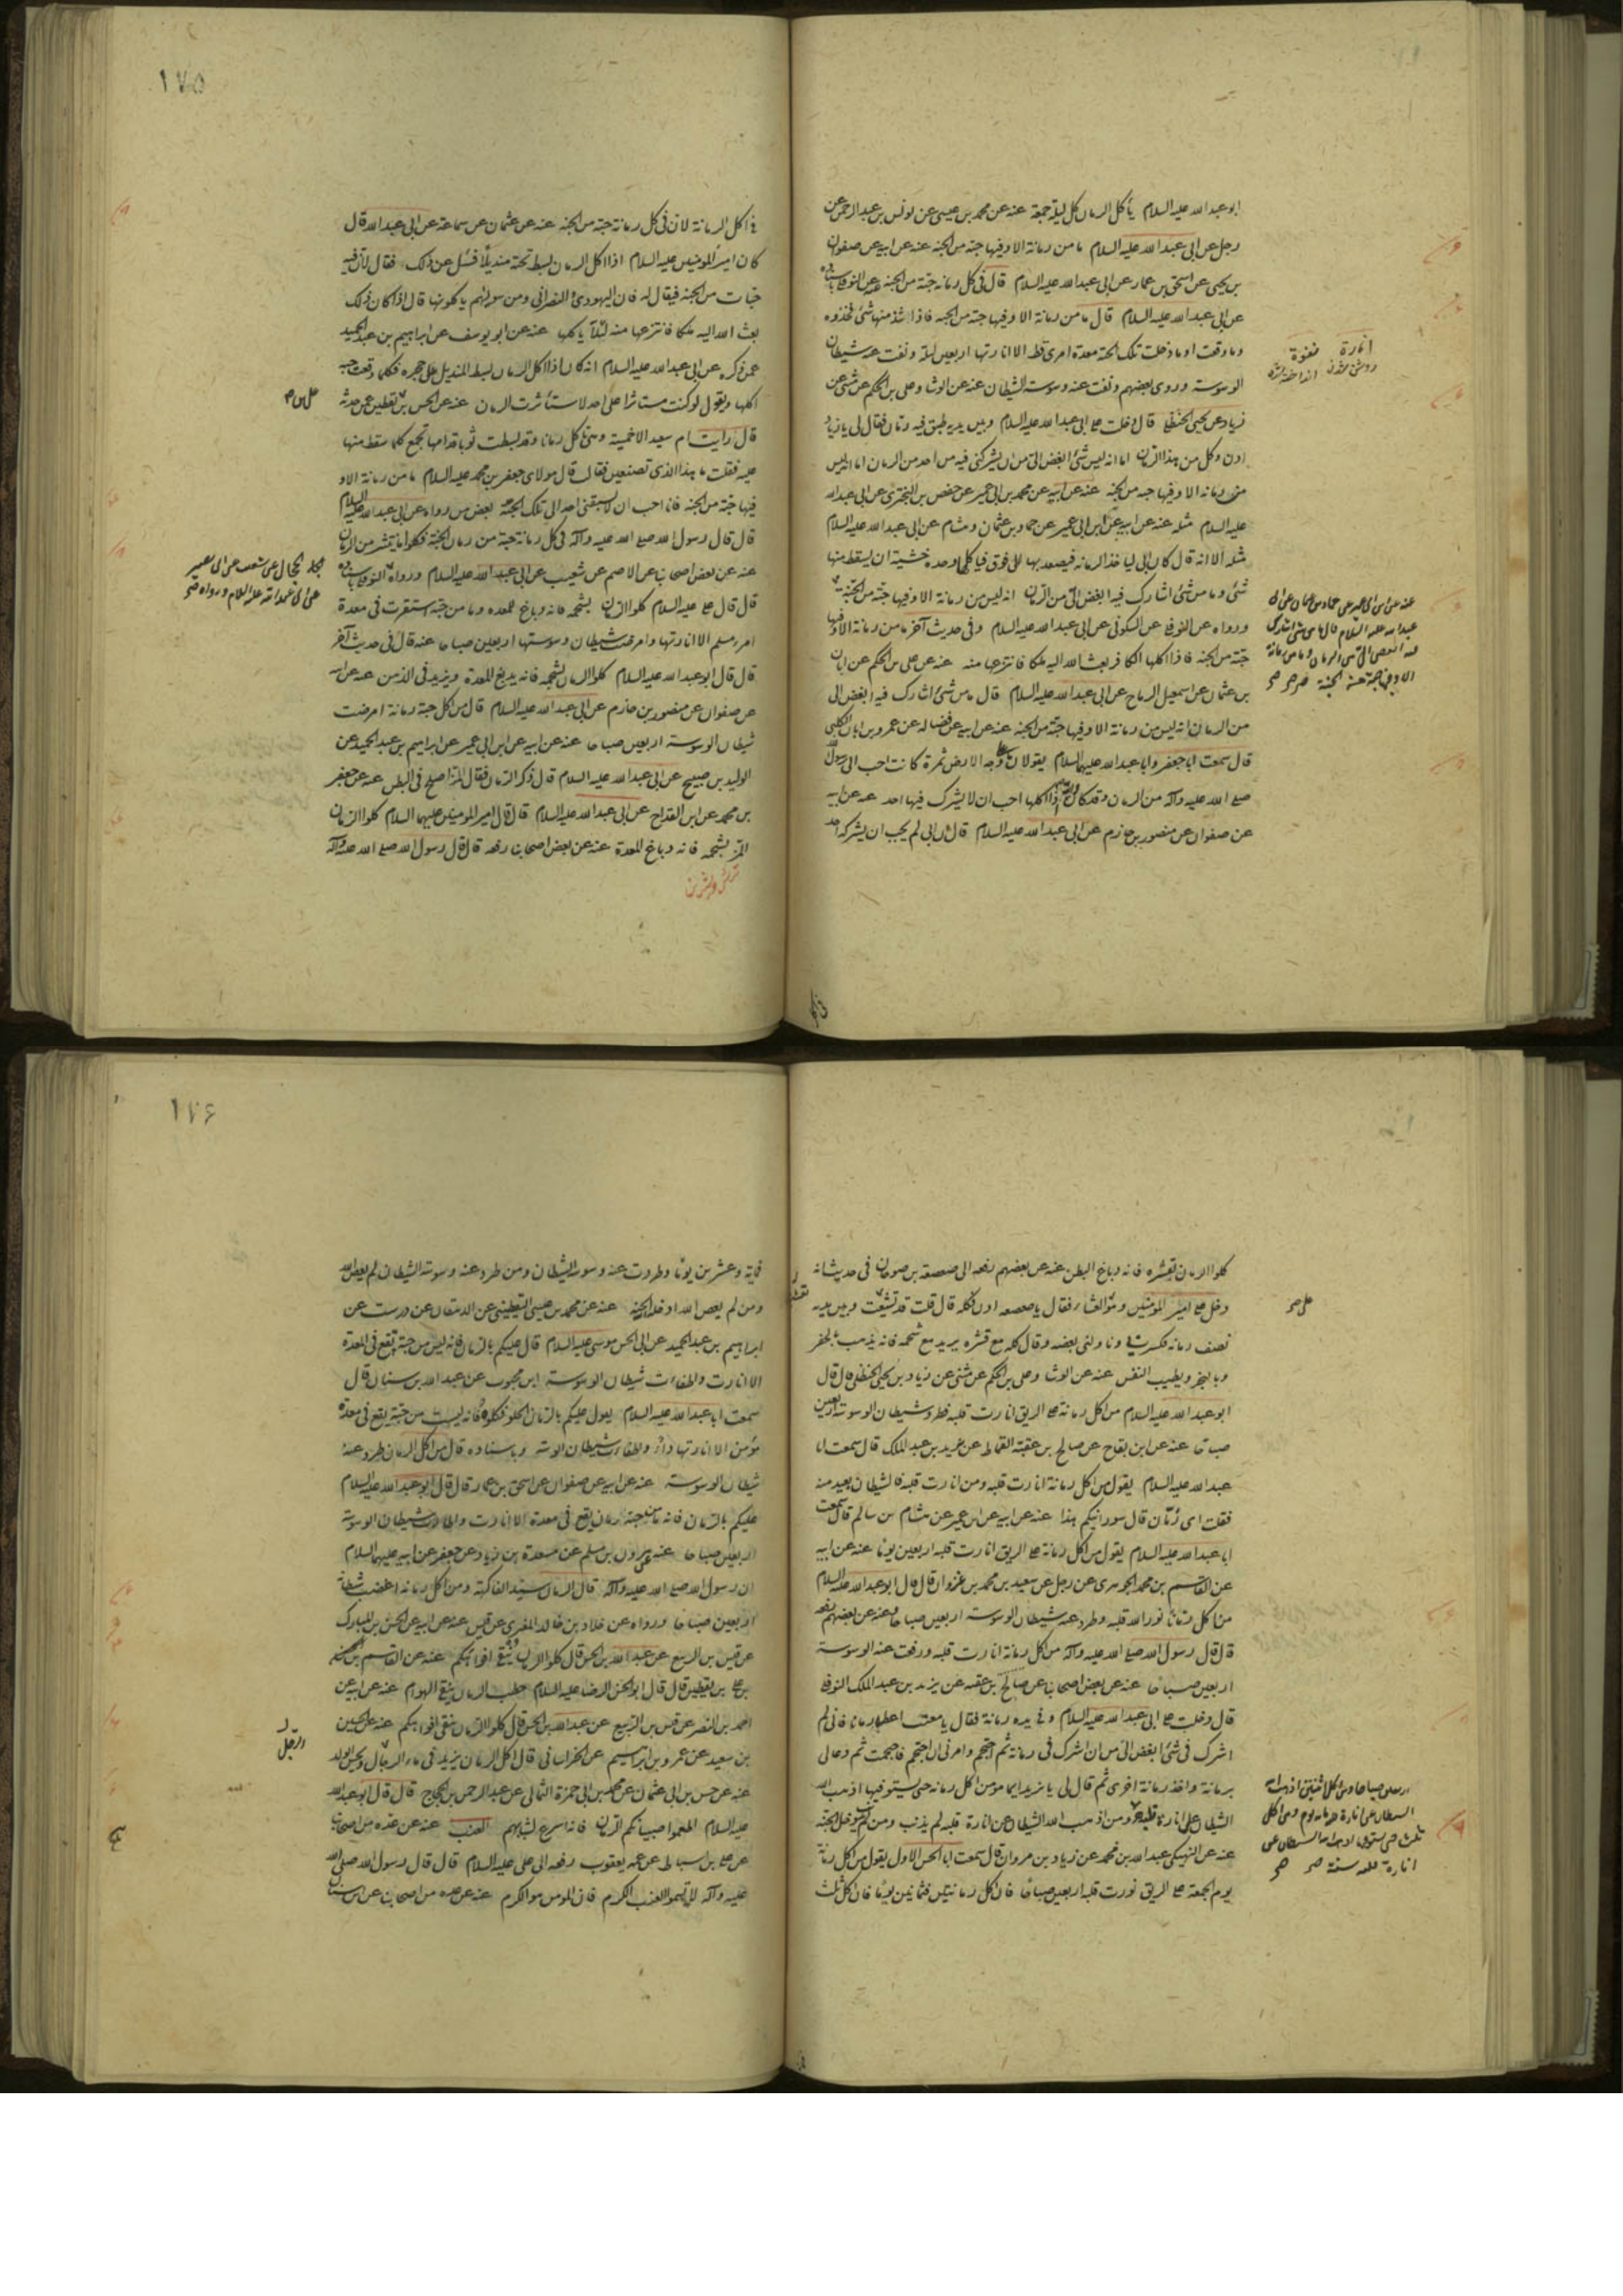 ابو عبد الله عليه السلام يأكل الرمان كل ليلة جمعة عنه عن محمد بن عيسى عن يونس بن عبد الرحمن عن
رجل عن ابى عبد الله عليه السلام ما من رمانة الا وفيها حبة من الجنة عنه عن ابيه عن صفوان
بن يحيى عن اسحق بن عمار عن ابى عبد الله عليه السلام قال فى كل رمانة حبة من الجنة عنه عن النوفلى باسناده
عن ابى عبد الله عليه السلام قال ما من رمانة الا وفيها حبة من الجنة فاذا شذ منها شئ فخذوه
وما وقعت او ما دخلت تلك الحبة معدة امرئ قط الا انارتها اربعين ليلة ونفت عنه شيطان
الوسوسة وروى بعضهم ونفت عنه وسوسة الشيطان عنه عن الوشا وعلى بن الحكم عن مثنى عن
زياد عن يحيى الحنظلى قال دخلت على ابى عبد الله عليه السلام وبين يديه طبق فيه رمان فقال لى يا زياد
ادن وكل من هذا الرمان اما انه ليس شئ ابغض الى من ان يشركنى فيه من احد من الرمان اما انه ليس
من رمانة الا وفيها حبة من الجنة عنه عن ابيه عن محمد بن ابى عمير عن حفص بن البخترى عن ابى عبد الله
عليه السلام مثله عنه عن ابيه عن ابن ابى عمير عن حماد بن عثمان وهشام عن ابى عبد الله عليه السلام
مثله الا انه قال كان ابى لياخذ الرمانة فيصعد بها الى فوق فياكلها وحده خشية ان يسقط منها
شئ وما من شئ اشارك فيه ابغض الى من الرمان انه ليس من رمانة الا وفيها حبة من الجنة
ورواه عن النوفلى عن السكونى عن ابى عبد الله عليه السلام وفى حديث آخر ما من رمانة الا وفيها
حبة من الجنة فاذا اكلها الكافر بعث الله اليه ملكا فانتزعها منه عنه عن على بن الحكم عن ابان
بن عثمان عن اسمعيل الرماح عن ابى عبد الله عليه السلام قال ما من شئ اشارك فيه ابغض الى
من الرمان انه ليس من رمانة الا وفيها حبة من الجنة عنه عن ابيه عن فضالة عن عمرو بن ابان الكلبى
قال سمعت ابا جعفر وابا عبد الله عليهما السلام يقولان ما على وجه الارض ثمرة كانت احب الى رسول الله
صلى الله عليه وآله من الرمان وقد كان والله اذا اكلها احب ان لا يشرك فيها احد عنه عن ابيه
عن صفوان عن منصور بن حازم عن ابى عبد الله عليه السلام قال كان ابى لم يحب ان يشركه احد
انارة
روشن شدن
عنه عن ابن ابى عمير عن حماد بن عثمان عن ابى
عبد الله عليه السلام قال ما من شئ اشارك
فيه ابغض الى من الرمان وما من رمانة
الا وفيها حبة من الجنة
١٧٥
فى اكل الرمانة لان فى كل رمانة حبة من الجنة عنه عن عثمان عن سماعة عن ابى عبد الله قال
كان امير المؤمنين عليه السلام اذا اكل الرمان بسط تحته منديلا فسئل عن ذلك فقال لان فيه
حبات من الجنة فيقال له فان اليهودى والنصرانى ومن سواهم ياكلونها قال اذا كان ذلك
بعث الله اليه ملكا فانتزعها منه لئلا ياكلها عنه عن ابو يوسف عن ابراهيم بن عبد الحميد
عمن ذكره عن ابى عبد الله عليه السلام انه كان اذا اكل الرمان بسط المنديل على حجره فكلما وقعت حبة
اكلها ويقول لو كنت مستاثرا على احد لاستأثرت الرمان عنه عن الحسن بن يقطين عمن حدثه
قال رايت ام سعيد الاحمسية وهى تاكل رمانا وقد بسطت ثوبا قدامها تجمع كلما سقط منها
عليه فقلت ما هذا الذى تصنعين فقالت قال مولاى جعفر بن محمد عليه السلام ما من رمانة الا و
فيها حبة من الجنة فانا احب ان لا يسبقنى احد الى تلك الحبة بعض من رواه عن ابى عبد الله عليه السلام
قال قال رسول الله صلى الله عليه وآله فى كل رمانة حبة من رمان الجنة فكلوا ما ينتثر من الرمان
عنه عن بعض اصحابنا عن الاصم عن شعيب عن ابى عبد الله عليه السلام ورواه النوفلى باسناده
قال قال على عليه السلام كلوا الرمان بشحمه فانه دباغ المعدة وما من حبة استقرت فى معدة
امرء مسلم الا انارتها وامرضت شيطان وسوستها اربعين صباحا عنه قال فى حديث آخر
قال قال ابو عبد الله عليه السلام كلوا الرمان بشحمه فانه يدبغ المعدة ويزيد فى الذهن عنه عن ابيه
عن صفوان عن منصور بن حازم عن ابى عبد الله عليه السلام قال من اكل حبة رمانة امرضت
شيطان الوسوسة اربعين صباحا عنه عن ابيه عن ابن ابى عمير عن ابراهيم بن عبد الحميد عن
الوليد بن صبيح عن ابى عبد الله عليه السلام قال ذكر الرمان فقال المز اصلح فى البطن عنه عن جعفر
بن محمد عن ابن القداح عن ابى عبد الله عليه السلام قال قال امير المومنين عليهما السلام كلوا الرمان
المز بشحمه فانه دباغ للمعدة عنه عن بعض اصحابنا رفعه قال قال رسول الله صلى الله عليه وآله
كلوا الرمان بقشره فانه دباغ البطن عنه عن بعضهم رفعه الى صعصعة بن صوحان فى حديث انه
دخل على امير المؤمنين وهو على العشاء فقال يا صعصعة ادن فكل قال قلت قد تعشيت وبين يديه
نصف رمانة فكسر لى وناولنى بعضه وقال كله مع قشره يريد مع شحمه فانه يذهب بالحفر
وبالبخر ويطيب النفس عنه عن الوشا وعلى بن الحكم عن مثنى عن زياد بن يحيى الحنظلى قال قال
ابو عبد الله عليه السلام من اكل رمانة على الريق انارت قلبه فطرد شيطان الوسوسة اربعين
صباحا عنه عن ابن بقاح عن صالح بن عقبة القماط عن يزيد بن عبد الملك قال سمعت ابا
عبد الله عليه السلام يقول من اكل رمانة انارت قلبه ومن انارت قلبه فالشيطان بعيد منه
فقلت اى رمان قال سورانيكم هذا عنه عن ابيه عن ابن ابى عمير عن هشام بن سالم قال سمعت
ابا عبد الله عليه السلام يقول من اكل رمانة على الريق انارت قلبه اربعين يوما عنه عن ابيه
عن القاسم بن محمد الجوهرى عن رجل عن سعيد بن محمد بن غزوان قال قال ابو عبد الله عليه السلام
من اكل رمانا نور الله قلبه وطرد عنه شيطان الوسوسة اربعين صباحا عنه عن بعضهم رفعه
قال قال رسول الله صلى الله عليه وآله من اكل رمانة انارت قلبه ورفعت عنه الوسوسة
اربعين صباحا عنه عن بعض اصحابنا عن صالح بن عقبة عن يزيد بن عبد الملك النوفلى
قال دخلت على ابى عبد الله عليه السلام وفى يده رمانة فقال يا معتب اعطه رمانا فانى لم
اشرك فى شئ ابغض الى من ان اشرك فى رمانة ثم احتجم وامرنى ان احتجم فاحتجمت ثم دعا لى
برمانة واخذ رمانة اخرى ثم قال لى يا يزيد ايما مؤمن اكل رمانة حتى يستوفيها اذهب الله
الشيطان على انارة قلبه ومن اذهب الله الشيطان عن انارة قلبه لم يذنب ومن لم يذنب دخل الجنة
عنه عن النهيكى عبد الله بن محمد عن زياد بن مروان قال سمعت ابا الحسن الاول يقول من اكل رمانة
يوم الجمعة على الريق نورت قلبه اربعين صباحا فان اكل رمانتين فثمانين يوما فان اكل ثلث
١٧٦
فماية وعشرين يوما وطردت عنه وسوسة الشيطان ومن طرد عنه وسوسة الشيطان لم يعص الله
ومن لم يعص الله ادخله الجنة عنه عن محمد بن عيسى اليقطينى عن الدهقان عن درست عن
ابراهيم بن عبد الحميد عن ابى الحسن موسى عليه السلام قال عليكم بالرمان فانه ليس من حبة تقع فى المعدة
الا انارت واطفات شيطان الوسوسة ابن محبوب عن عبد الله بن سنان قال
سمعت ابا عبد الله عليه السلام يقول عليكم بالرمان الحلو فكلوه فانه ليست من حبة يقع فى معدة
مؤمن الا انارتها واطفات شيطان الوسوسة وباسناده قال من اكل الرمان طرد عنه
شيطان الوسوسة عنه عن ابيه عن صفوان عن اسحق بن عمار قال قال ابو عبد الله عليه السلام
عليكم بالرمان فانه ما من حبة رمان يقع فى معدة الا انارت واطارت شيطان الوسوسة
اربعين صباحا عنه عن هرون بن مسلم عن مسعدة بن زياد عن جعفر عن ابيه عليهما السلام
ان رسول الله صلى الله عليه وآله قال الرمان سيد الفاكهة ومن اكل رمانة اغضب شيطانه
اربعين صباحا ورواه عن خلاد بن خالد المقرى عن قيس عنه عن ابيه عن الحسن بن المبارك
عن قيس بن الربيع عن عبد الله بن الحسن قال كلوا الرمان ينقى افواهكم عنه عن القاسم بن الحسن
بن على بن يقطين قال قال ابو الحسن الرضا عليه السلام حطب الرمان ينفى الهوام عنه عن ابيه عن
احمد بن النضر عن قيس بن الربيع عن عبد الله بن الحسن قال كلوا الرمان ينقى افواهكم عنه عن الحسين
بن سعيد عن عمرو بن ابراهيم عن الخراسانى قال اكل الرمان يزيد فى ماء الرجل ويحسن الولد
عنه عن حسن بن ابى عثمان عن محمد بن ابى حمزة الثمالى عن عبد الرحمن بن الحجاج قال قال ابو عبد الله
عليه السلام اطعموا صبيانكم الرمان فانه اسرع لشبابهم العنب عنه عن عدة من اصحابنا
عن على بن اسباط عن عمه يعقوب رفعه الى على عليه السلام قال قال رسول الله صلى الله
عليه وآله لا تسموا العنب الكرم فان المومن هو الكرم عنه عن عدة من اصحابنا عن ابن سنان
الرجل